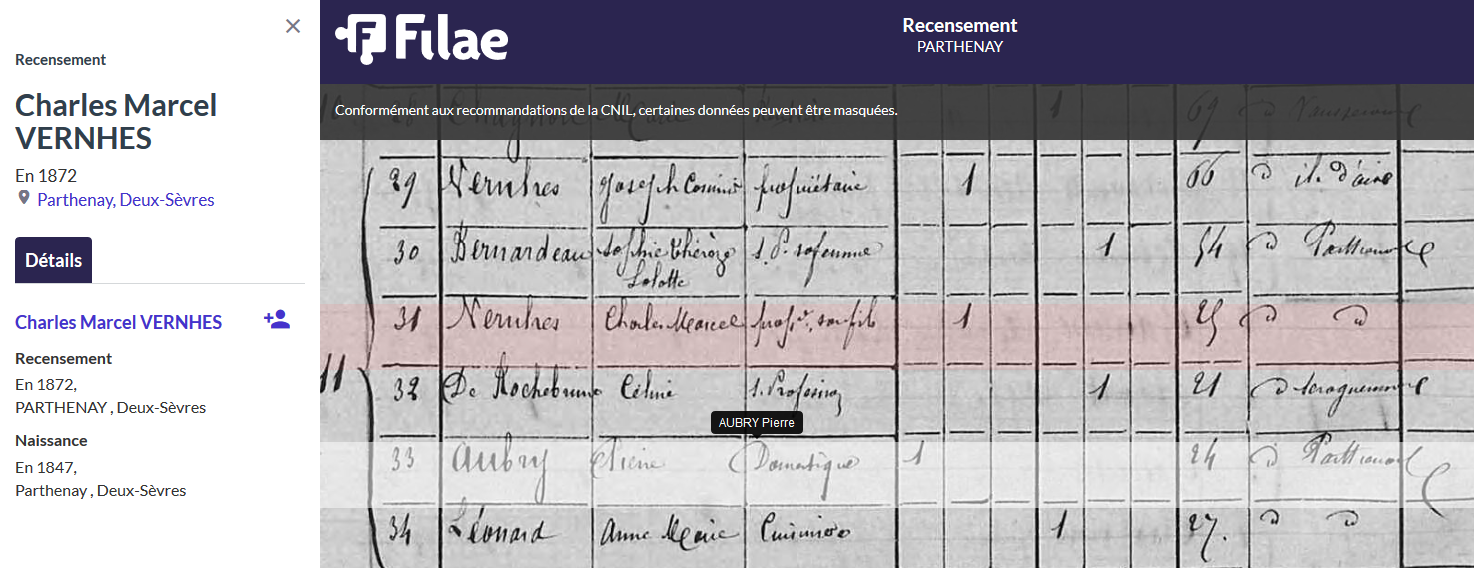 Recensement
Charles Marcel
VERNHES
En 1872
Parthenay, Deux-Sèvres
Détails
Charles Marcel VERNHES
Recensement
En 1872,
PARTHENAY , Deux-Sèvres
Naissance
En 1847,
Parthenay , Deux-Sèvres
Filae
Recensement
PARTHENAY
Conformément aux recommandations de la CNIL, certaines données peuvent être masquées.
1 69
29 Vernhes Joseph propriétaire 1 66
30 Bernardeau Sophie Thérèze s. P. sa femme 1 54 Parthenay
Lolotte
31 Vernhes Charles Marcel prof. son fils 1 25
11
32 De Rochebrune Céline s. Profession 1 21
AUBRY Pierre
33 Aubry Pierre Domestique 1 24 Parthenay
34 Léonard Anne Marie Cuisinière 1 27.